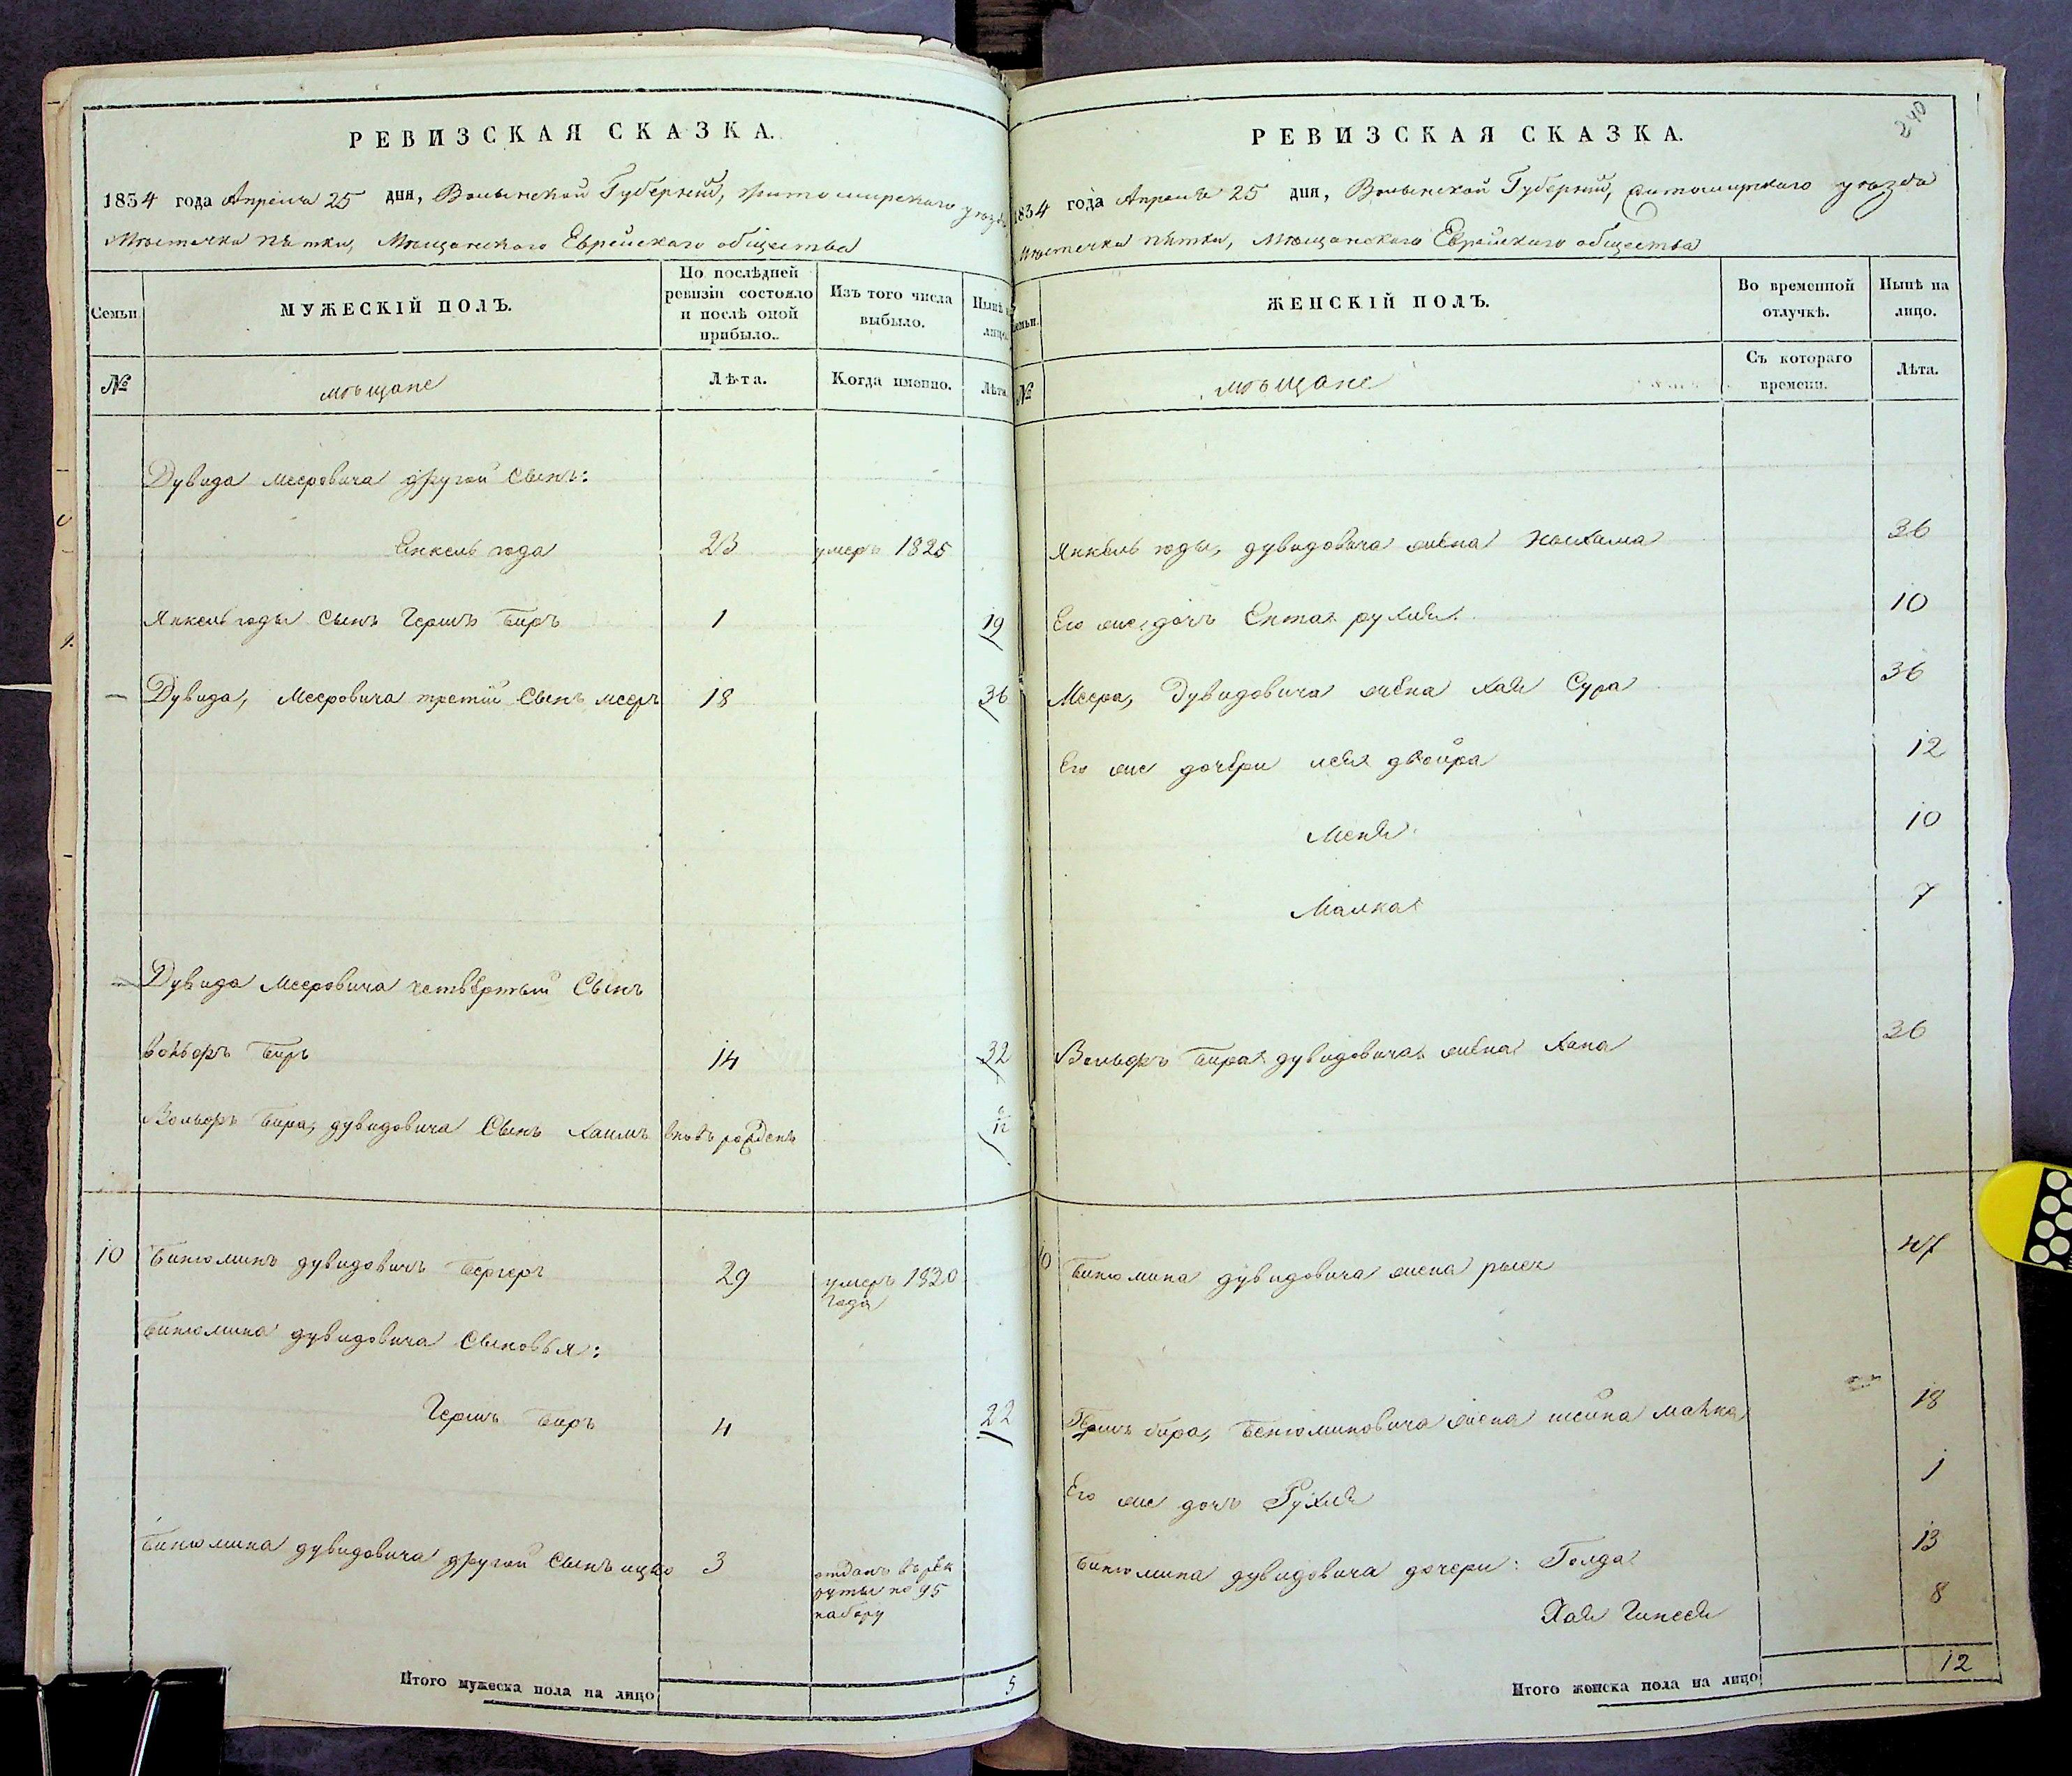 РЕВИЗСКАЯ СКАЗКА.
1834 года Апреля 25 дня, Волынской Губерніи, Житомирскаго уезда
Мѣстечка Пятки, Мѣщанскаго Еврейскаго общества
Семьи
МУЖЕСКІЙ ПОЛЪ.
По послѣдней ревизіи состояло и послѣ оной прибыло.
Изъ того числа выбыло.
Нынѣ лицо
№
мѣщане
Лѣта.
Когда именно.
Лѣта
Дувида Мееровича другой Сынъ:
Янкель юда 23 умеръ 1825
Янкель юды сынъ Гершъ Беръ 1 19
Дувида, Мееровича третій Сынъ мееръ 18 36
Дувида Мееровича четвертый Сынъ
вольфъ Беръ 14 32
Вольфъ Бера, дувидовича Сынъ Хаимъ вновь рожденъ 6/12
10 Бинюминъ дувидовичъ Бергеръ 29 умеръ 1820 года
Бинюмина дувидовича Сыновья:
Гершъ Беръ 4 22
Бинюмина дувидовича другой Сынъ ицко 3 отданъ въ рекруты по 95 набору
Итого мужеска пола на лицо 5
240
РЕВИЗСКАЯ СКАЗКА.
1834 года Апреля 25 дня, Волынской Губерніи, Житомирскаго уезда
Мѣстечка Пятки, Мѣщанскаго Еврейскаго общества
Семьи.
ЖЕНСКІЙ ПОЛЪ.
Во временной отлучкѣ.
Нынѣ на лицо.
№
мѣщане
Съ котораго времени.
Лѣта.
Янкель юды, дувидовича жена 36
Его же, дочь Ента рухля 10
Меера, Дувидовича жена хая Сура 36
Его же дочери лея двойра 12
Меня 10
Малка 7
Вольфъ Бера дувидовича жена Хана 36
10 Бинюмина дувидовича жена 47
Гершъ бера, Бенюминовича жена шейна малка 18
Его же дочь Рухля 1
Бинюмина дувидовича дочери: Голда 13
Хая Гинеся 8
Итого женска пола на лицо 12